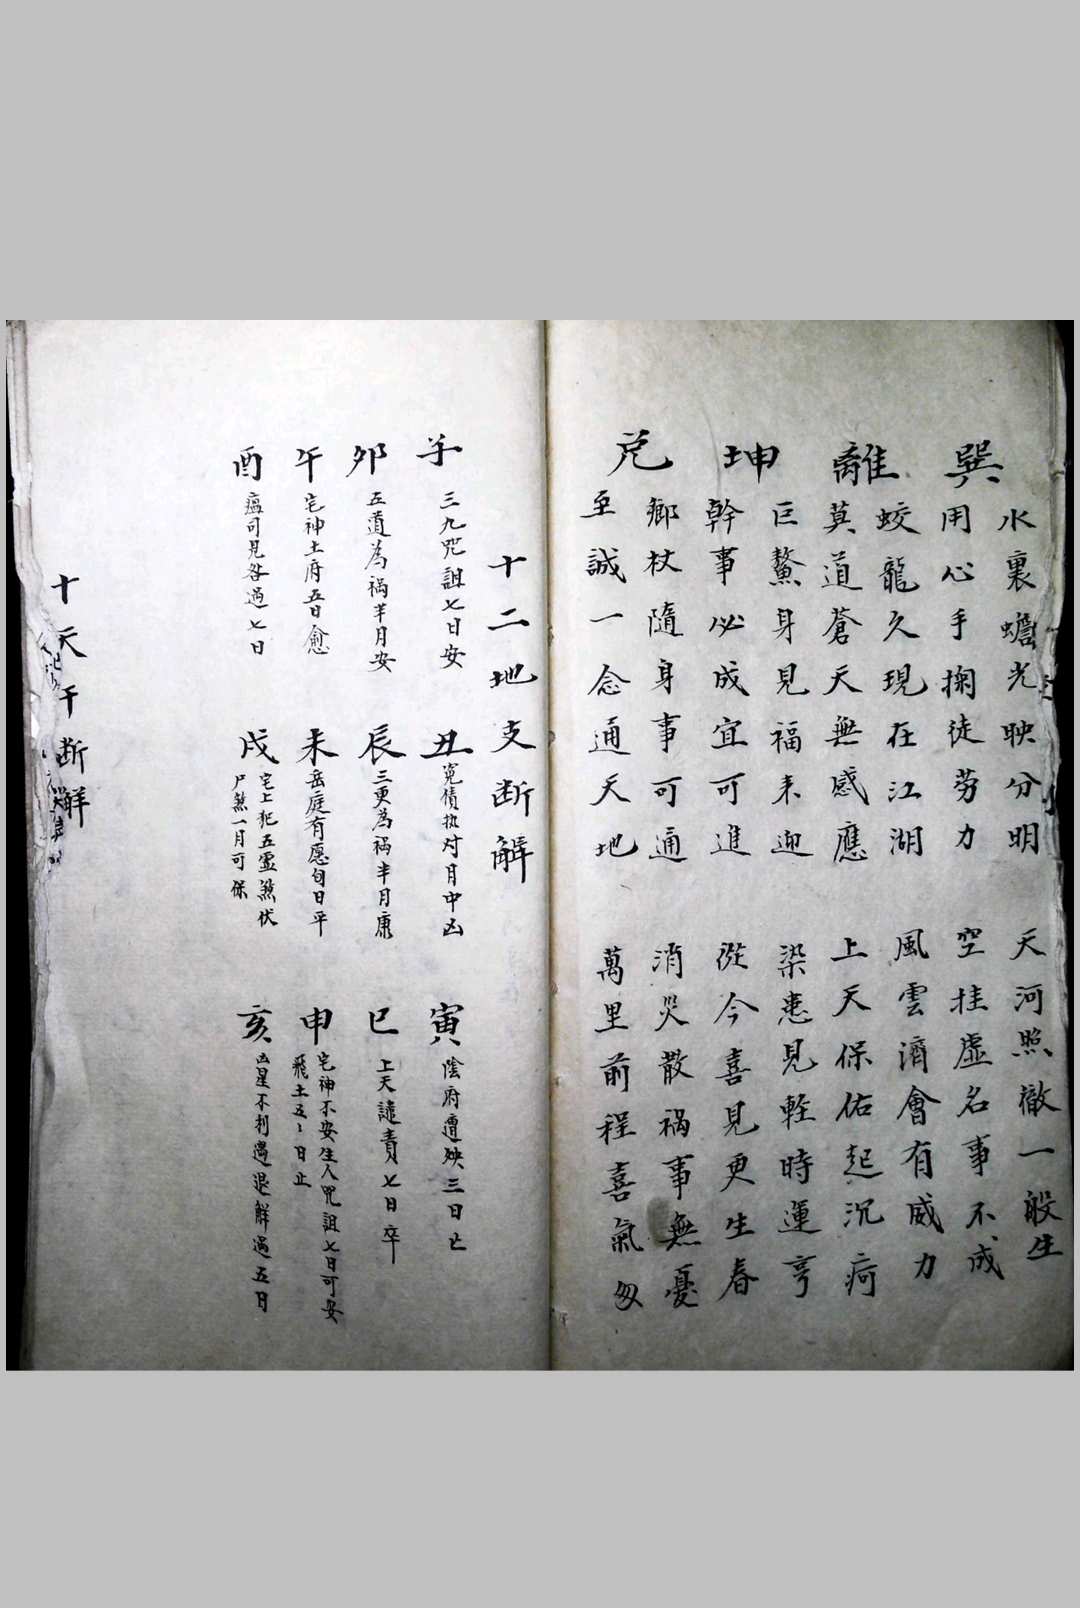 巽
水裏蟾光映分明　天河照徹一般生
用心手掬徒劳力　空挂虚名事不成
離
蛟龍久現在江湖　風雲濟會有威力
莫道蒼天無感應　上天保佑起沉疴
坤
巨鰲身見福来迎　染患見軽時運亨
幹事必成宜可進　從今喜見更生春
兑
鄉杖隨身事可通　消災散禍事無憂
至誠一念通天地　萬里前程喜氣匆
十二地支断解
子　三九咒詛七日安
丑　冤債执対月中凶
寅　陰府遭殃三日亡
卯　五道為禍半月安
辰　三更為禍半月康
巳　上天譴責七日卒
午　宅神土府五日愈
未　岳庭有愿旬日平
申　宅神不安生人咒詛七日可安
飛土五〻日止
酉　瘟司見咎過七日
戌　宅上犯五霊煞伏
尸煞一月可保
亥　凶星不利遇退解過五日
十天干断解